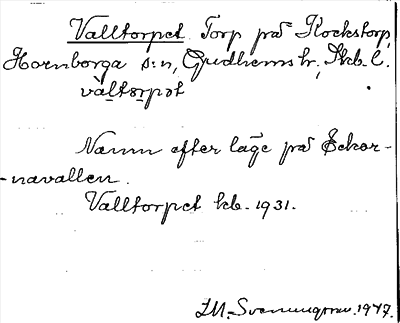 Valltorpet Torp på Kockstorp,
Hornborga s:n, Gudhems hr, Skb. l.
valtorpet
Namn efter läge på Ekor-
-navallen.
Valltorpet kb. 1931.
1947.